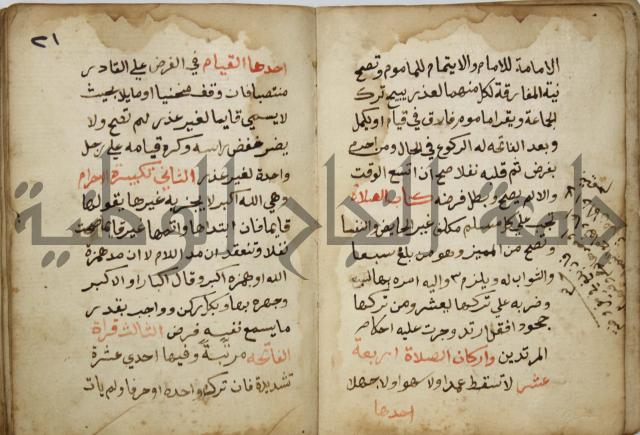 الامامة للامام والايتمام للماموم وتصح
نية المفارقة لكل منهما لعذر يبيح ترك
الجماعة ويقرا ماموم فارق في قيام او يكمل
وبعد الفاتحه له الركوع في الحال ومن احرم
بفرض ثم قلبه نفلا صح ان اتسع الوقت
والا لم يصح وبطل فرضه كتاب الصلاة
تجب على كل مسلم مكلف غير الحايض والنفسا
وتصح من المميز وهو من بلغ سبعا
والثواب له ويلزم وليه امره بها
وضربه علي تركها لعشر ومن تركها
جحودا فقد ارتد وجرت عليه احكام
المرتدين واركان الصلاة اربعة
عشر لا تسقط عمدا ولا سهوا ولا جهلا
احدها
٢١
احدها القيام في الفرض على القادر
منتصبا فان وقف منحنيا او مايلا بحيث
لا يسمى قايما لغير عذر لم تصح ولا
يضر خفض راسه وكره قيامه على رجل
واحدة لغير عذر الثاني تكبيرة الاحرام
وهي الله اكبر لا يجزيه غيرها يقولها
قايما فان ابتداها او اتمها غير قايم صحت
نفلا وتنعقد ان مد اللام لا ان مد همزة
الله او همزة اكبر وقال اكبار او الاكبر
وجهره بها وبكل ركن وواجب بقدر
ما يسمع نفسه فرض الثالث قراة
الفاتحه مرتبة وفيها احدي عشرة
تشديدة فان ترك واحدة او حرفا ولم يات
جامعة النجاح الوطنية